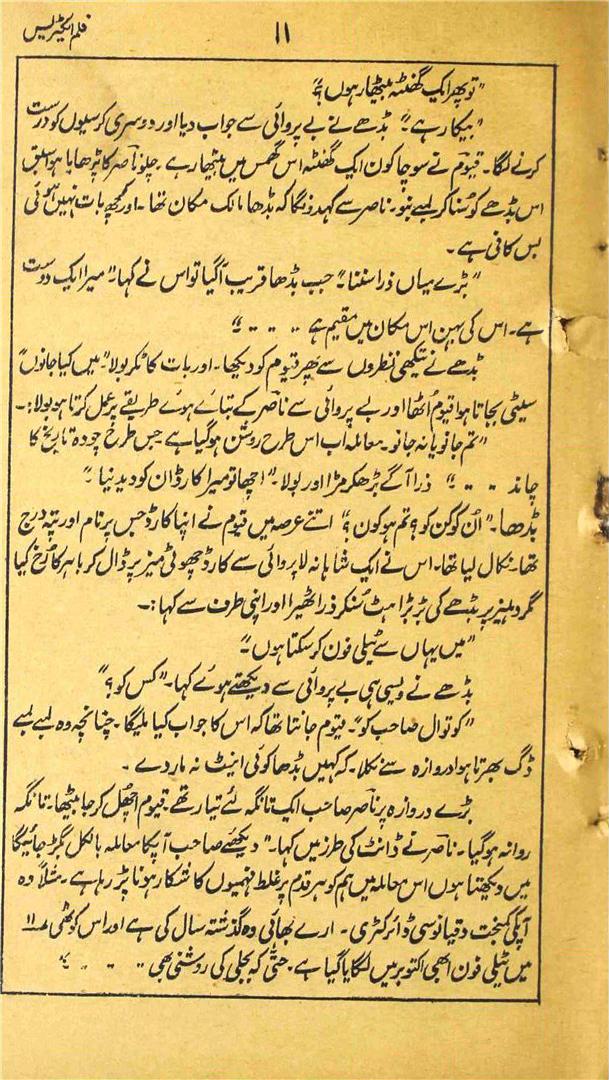 فلم ایکٹریس
۱۱
"تو پھر ایک گھنٹہ بیٹھا رہوں؟"
"بیکار ہے"۔ بڈھے نے بے پروائی سے جواب دیا اور دوسری کرسیوں کو درست
کرنے لگا۔ قیوم نے سوچا کون ایک گھنٹہ اس گھمس میں بیٹھا رہے۔ چلو ناصر کا پڑھایا ہوا سبق
اس بڈھے کو سنا کر لمبے بنو۔ ناصر سے کہدونگا کہ بڈھا مالک مکان تھا۔ اور کچھ بات نہیں ہوئی
بس کافی ہے۔
"بڑے میاں ذرا سننا"۔ جب بڈھا قریب آگیا تو اس نے کہا۔ "میرا ایک دوست
ہے۔ اس کی بہن اس مکان میں مقیم ہے ۔۔ ۔۔ ۔۔"
بڈھے نے تیکھی نظروں سے پھر قیوم کو دیکھا۔ اور بات کاٹکر بولا۔ "میں کیا جانوں"
سیٹی بجاتا ہوا قیوم اُٹھا اور بے پروائی سے ناصر کے بتائے ہوئے طریقے پر عمل کرتا ہو بولا:۔
"تم جانو یا نہ جانو۔ معاملہ اب اس طرح روشن ہوگیا ہے جس طرح چودہ تاریخ کا
چاند ۔۔ ۔۔ ۔۔" ذرا آگے بڑھکر مڑا اور بولا۔ "اچھا تو میرا کارڈ ان کو دیدنیا۔"
بڈھا۔ "اُن کو کن کو؟ تم ہو کون؟" اتنے عرصہ میں قیوم نے اپنا کارڈ جس پر نام اور پتہ درج
تھا۔ نکال لیا تھا۔ اس نے ایک شاہانہ لاپروائی سے کارڈ چھوٹی میز پر ڈال کر باہر کا رُخ کیا
گر دہلیز پر بڈھے کی بڑبڑاہٹ سُنکر ذرا ٹھیرا اور اپنی طرف سے کہا:۔
"میں یہاں سے ٹیلی فون کر سکتا ہوں"۔
بڈھے نے ویسی ہی بے پروائی سے دیکھتے ہوئے کہا۔ "کس کو؟"
"کوتوال صاحب کو"۔ قیوم جانتا تھا کہ اس کا جواب کیا ملیگا۔ چنانچہ وہ لمبے لمبے
ڈگ بھرتا ہوا دروازہ سے نکلا۔ کہ کہیں بڈھا کوئی اینٹ نہ مار دے۔
بڑے دروازہ پر ناصر صاحب ایک تانگہ لئے تیار تھے۔ قیوم اچھل کر جا بیٹھا۔ تانگہ
روانہ ہوگیا۔ ناصر نے ڈانٹ کی طرز میں کہا۔ "دیکھئے صاحب آپکا معاملہ بالکل بگڑ جائیگا
میں دیکھتا ہوں اس معاملہ میں ہم کو ہر قدم پر غلط فہمیوں کا شکار ہونا پڑ رہا ہے۔ مثلاً وہ
آپکی کمبخت دقیانوسی ڈائرکٹری۔ ارے بھائی وہ گذشتہ سال کی ہے اور اس کوٹھی ۱۱
میں ٹیلی فون ابھی اکتوبر میں لگایا گیا ہے۔ حتیٰ کہ بجلی کی روشنی بھی ۔۔ ۔۔ ۔۔"